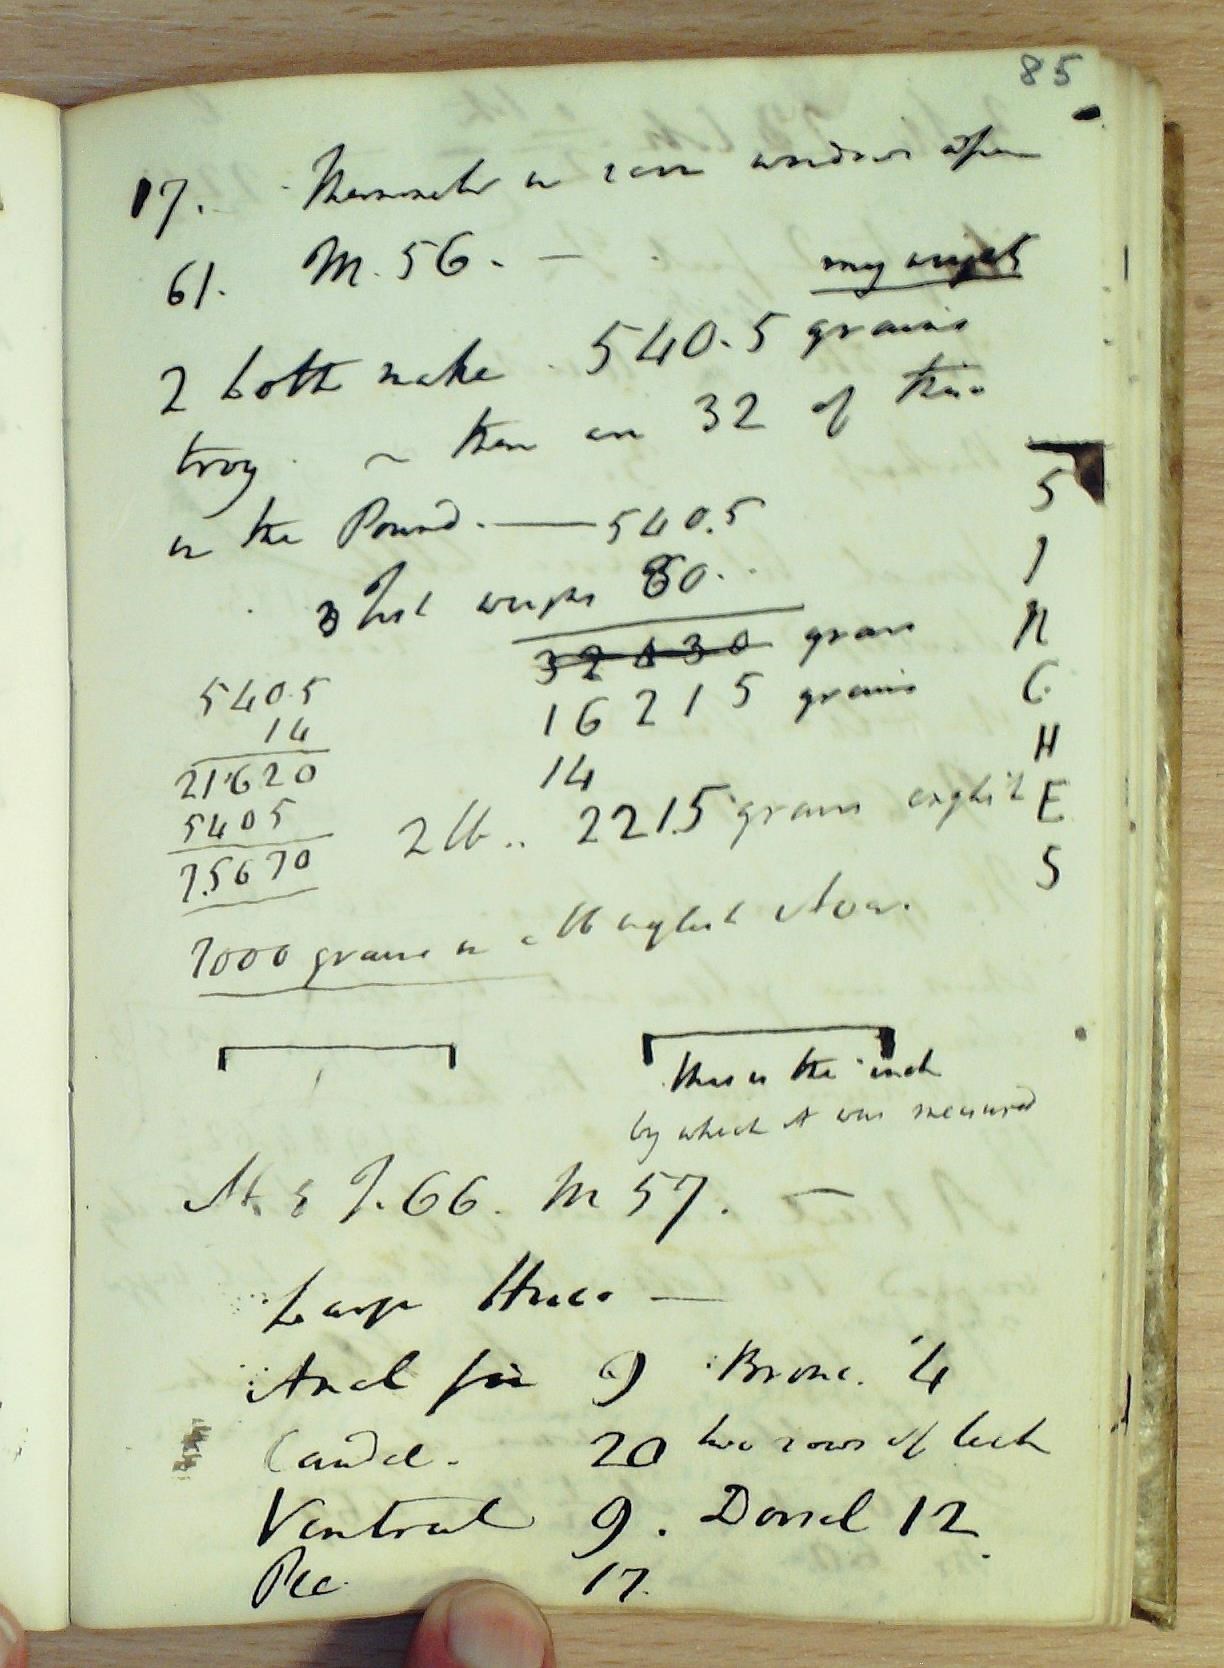 85
17. Thermometer in room windows open
61. M. 56. —
my weight
2 both make 540.5 grains
troy. ~ there are 32 of these
in the Pound. — 540.5
3 first weighs 60.
32430 grains
16215 grains
540.5
14
21620
5405
75670
14
2 lb .. 2215 grains english
7000 grains in a lb english Avoir.
5 I N C H E S
this is the inch
by which it was measured
M. 57.
Large Hucho —
Anal fin 9 Bronc. 4
Caudal. 20 two rows of teeth
Ventral 9. Dorsal 12
Pec 17.